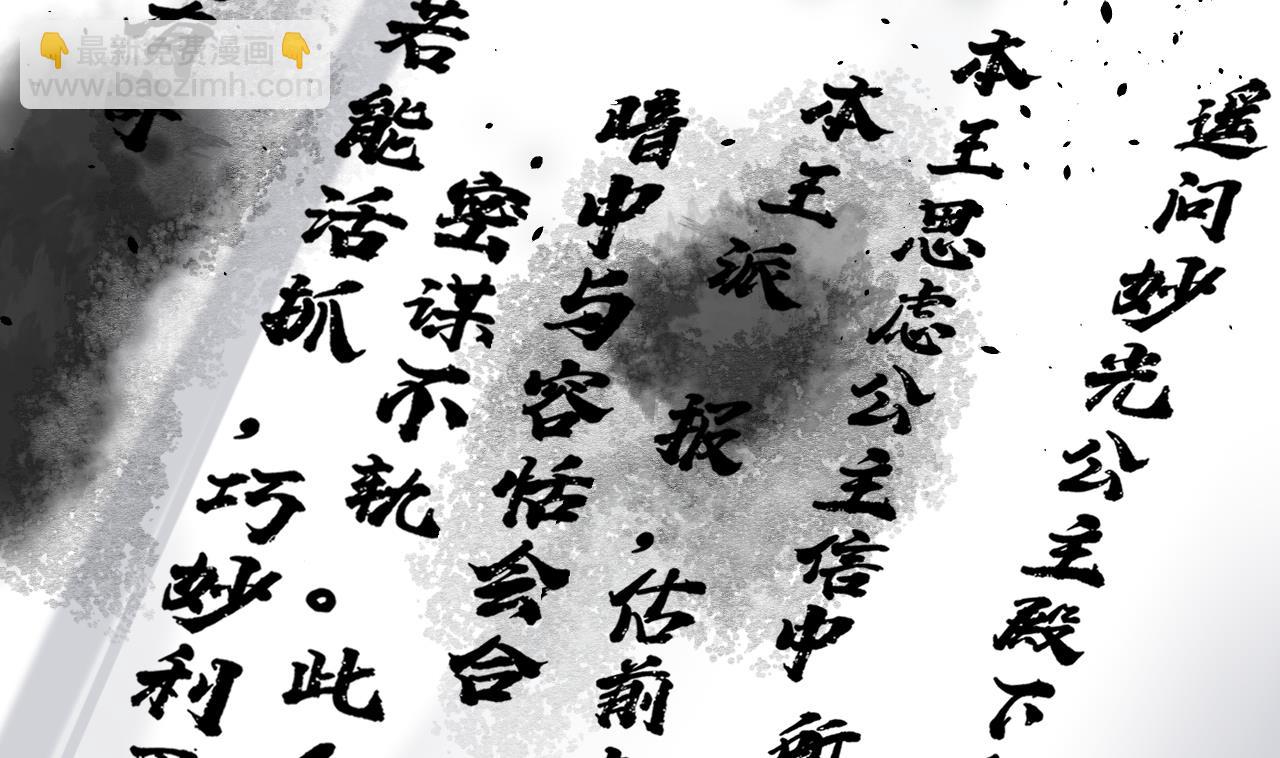 遥问妙光公主殿下
本王思虑公主信中所
本王派探,估前
暗中与容恬会合
密谋不轨。此
若能活抓,巧妙利
👇最新免费漫画👇
www.baozimh.com